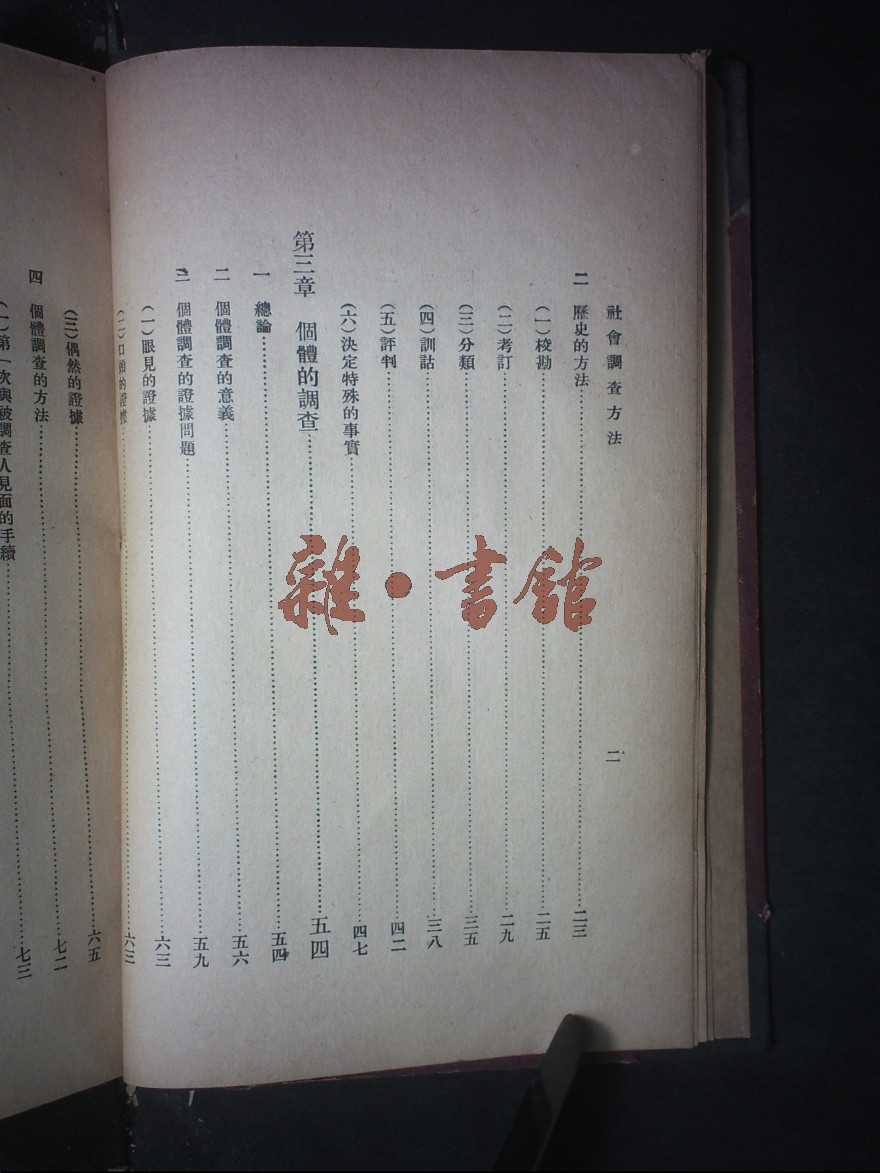 社會調查方法
二
二 歷史的方法……二三
(一)校勘……二五
(二)考訂……二九
(三)分類……三五
(四)訓詁……三八
(五)評判……四二
(六)決定特殊的事實……四七
第三章 個體的調查……五四
一 總論……五四
二 個體調查的意義……五六
三 個體調查的證據問題……五九
(一)眼見的證據……六三
(二)口頭的證據……六三
(三)偶然的證據……六五
四 個體調查的方法……七二
(一)第一次與被調查人見面的手續……七三
雜·書館